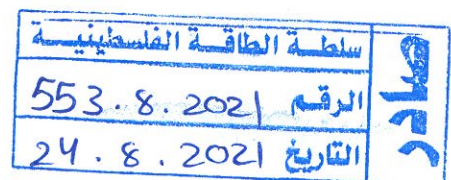 سلطة الطاقة الفلسطينية
صادر
الرقم 553.8.2021
التاريخ 24.8.2021